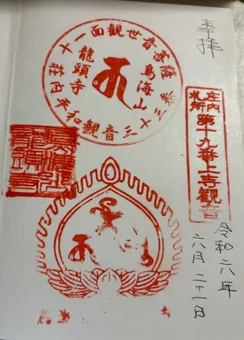 奉拝
庄内札所第十九番上寺観音
十一面観世音菩薩
鳥海山
龍頭寺
荘内平和観音
令和六年
六月二十一日